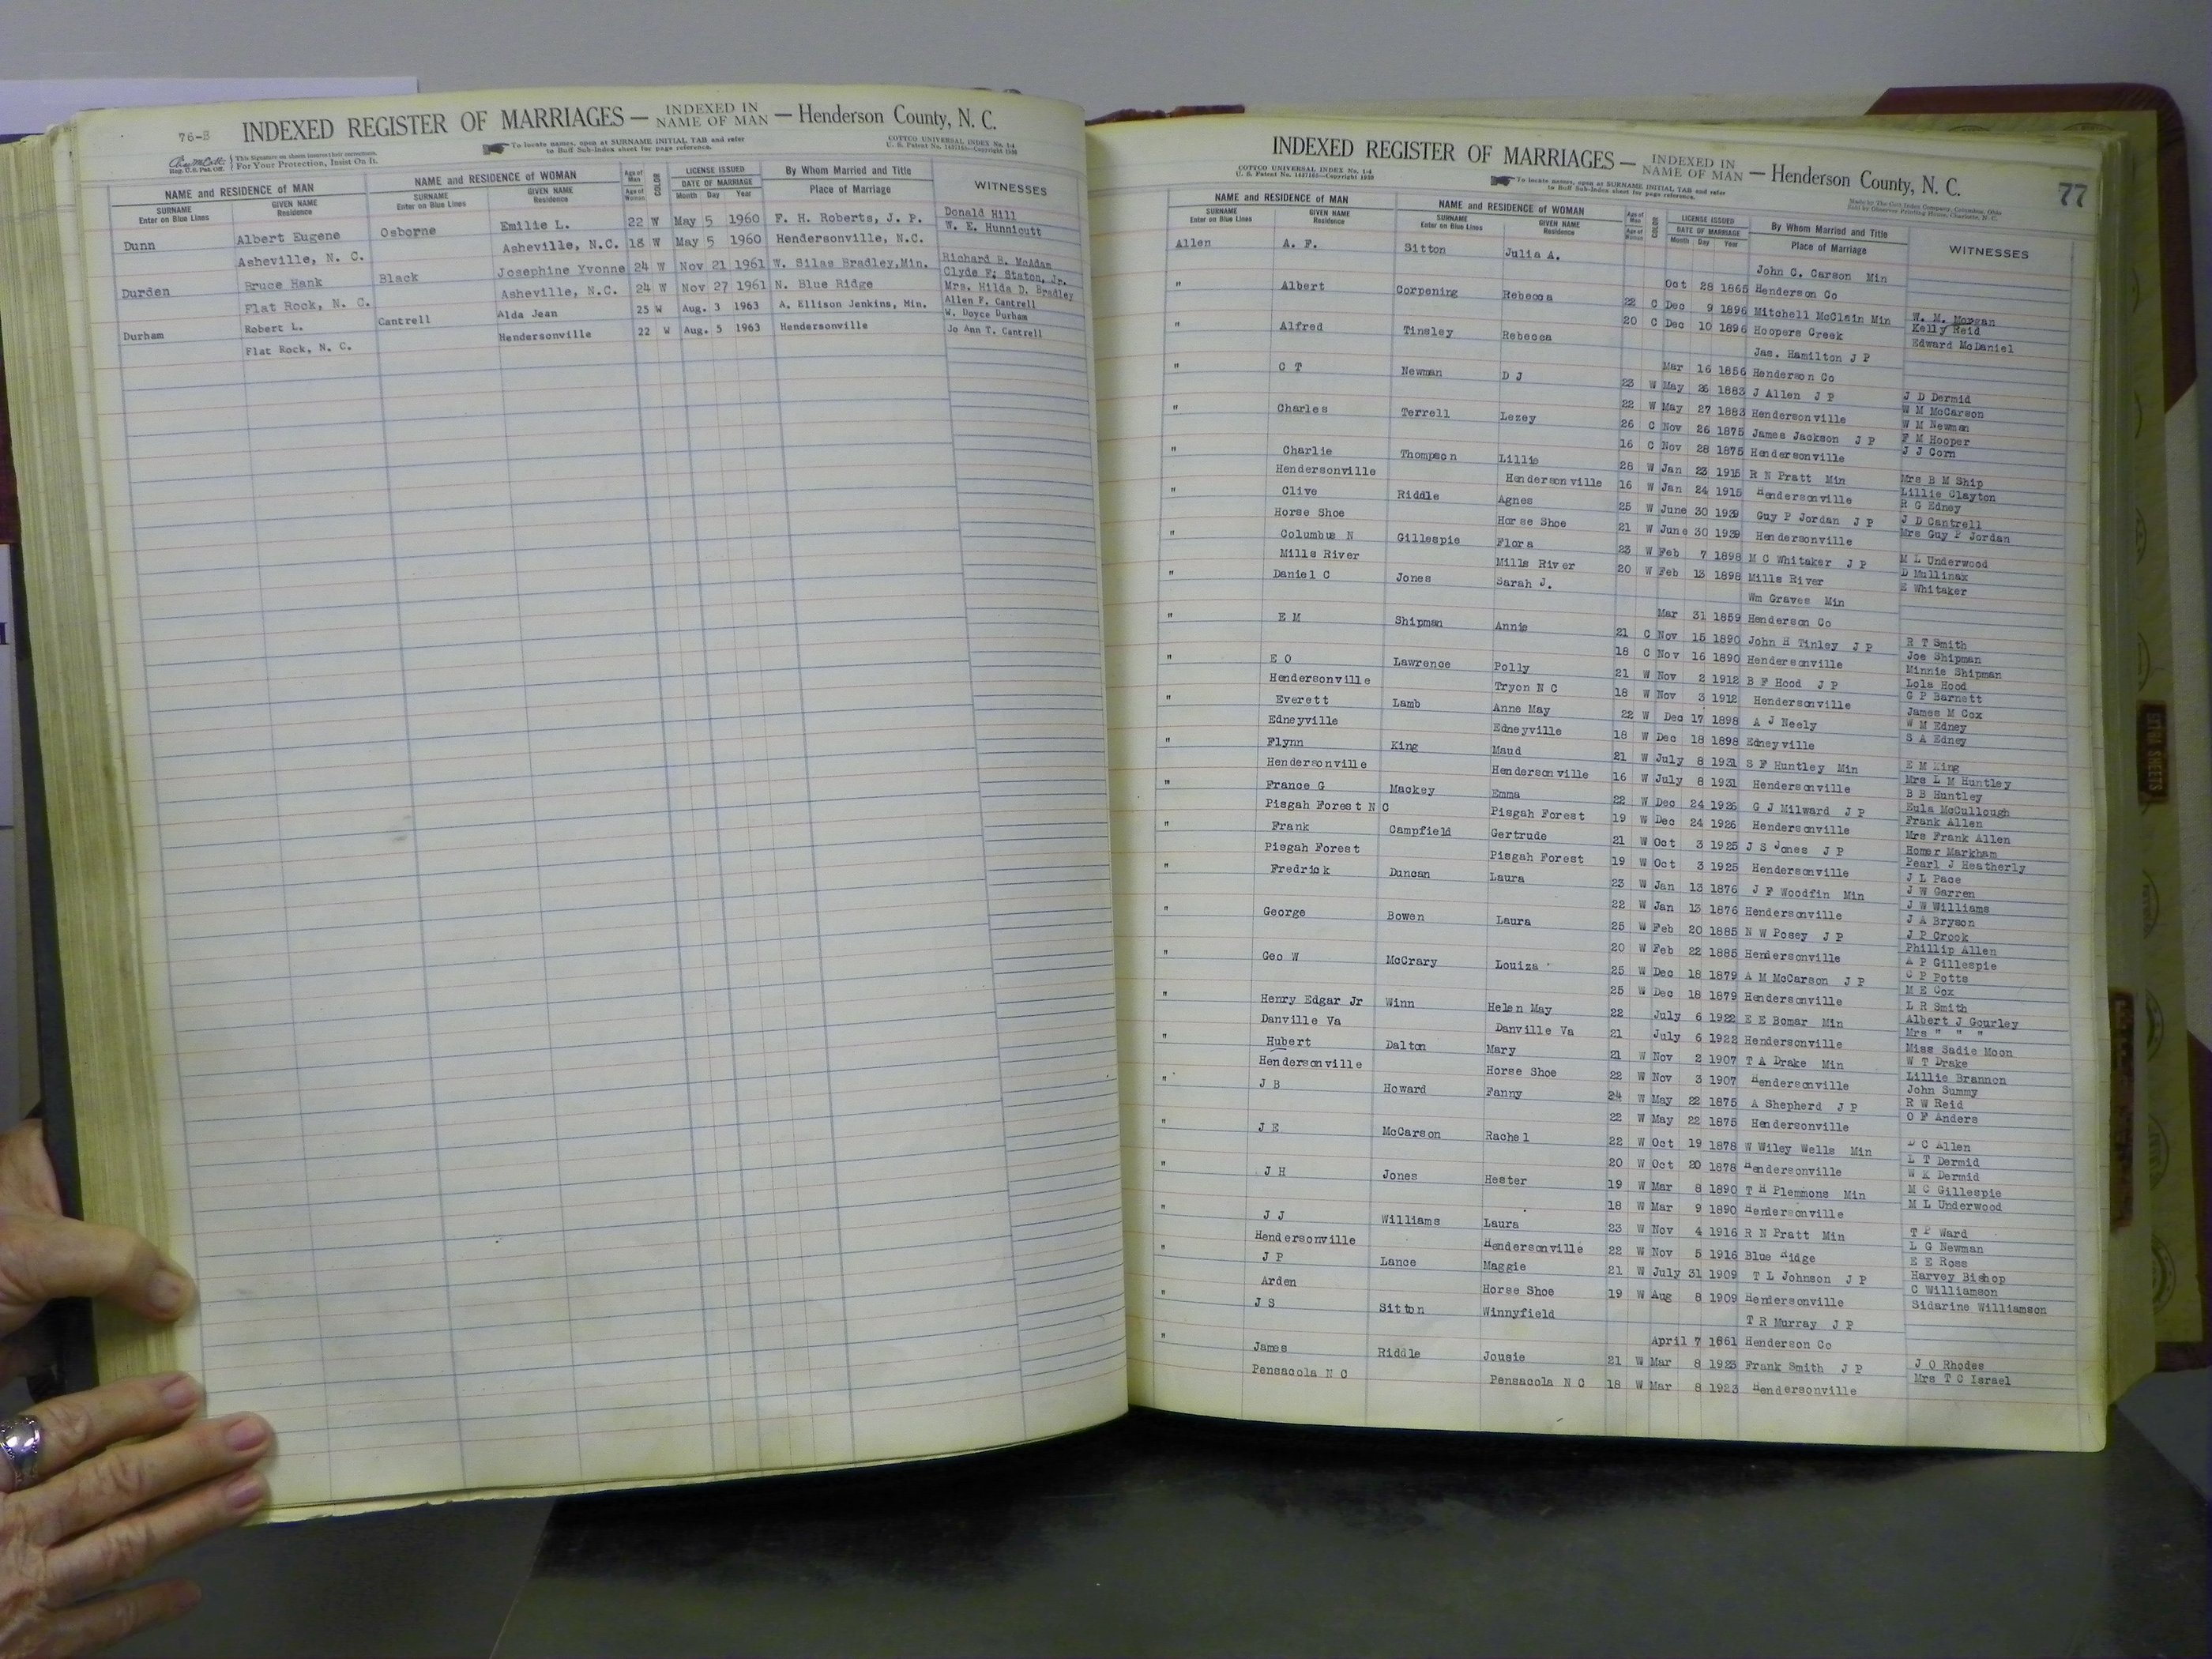 76-B
INDEXED REGISTER OF MARRIAGES — INDEXED IN NAME OF MAN — Henderson County, N. C.
This Signature on sheets insures their correctness.
Reg. U.S. Pat. Off. For Your Protection, Insist On It.
To locate names, open at SURNAME INITIAL TAB and refer
to Buff Sub-Index sheet for page reference.
COTTCO UNIVERSAL INDEX No. 1-4
NAME and RESIDENCE of MAN NAME and RESIDENCE of WOMAN Age of Man COLOR LICENSE ISSUED By Whom Married and Title WITNESSES
SURNAME Enter on Blue Lines GIVEN NAME Residence SURNAME Enter on Blue Lines GIVEN NAME Residence Age of Woman DATE OF MARRIAGE Month Day Year Place of Marriage
Dunn Albert Eugene Osborne Emilie L. 22 W May 5 1960 F. H. Roberts, J. P. Donald Hill
W. E. Hunnicutt
Asheville, N. C. Asheville, N.C. 18 W May 5 1960 Hendersonville, N.C.
Durden Bruce Hank Black Josephine Yvonne 24 W Nov 21 1961 W. Silas Bradley,Min. Richard B. McAdam
Clyde F. Staton, Jr.
Flat Rock, N. C. Asheville, N.C. 24 W Nov 27 1961 N. Blue Ridge Mrs. Hilda D. Bradley
Durham Robert L. Cantrell Alda Jean 25 W Aug. 3 1963 A. Ellison Jenkins, Min. Allen F. Cantrell
W. Doyce Durham
Flat Rock, N. C. Hendersonville 22 W Aug. 5 1963 Hendersonville Jo Ann T. Cantrell
INDEXED REGISTER OF MARRIAGES — INDEXED IN NAME OF MAN — Henderson County, N. C.
77
COTTCO UNIVERSAL INDEX No. 1-4
To locate names, open at SURNAME INITIAL TAB and refer
to Buff Sub-Index sheet for page reference.
NAME and RESIDENCE of MAN NAME and RESIDENCE of WOMAN Age of Man COLOR LICENSE ISSUED By Whom Married and Title WITNESSES
SURNAME Enter on Blue Lines GIVEN NAME Residence SURNAME Enter on Blue Lines GIVEN NAME Residence Age of Woman DATE OF MARRIAGE Month Day Year Place of Marriage
Allen A. F. Sitton Julia A. John C. Carson Min
Oct 28 1865 Henderson Co
" Albert Corpening Rebecca 22 C Dec 9 1896 Mitchell McClain Min W. M. Morgan
Kelly Reid
20 C Dec 10 1896 Hoopers Creek Edward McDaniel
" Alfred Tinsley Rebecca Jas. Hamilton J P
Mar 16 1856 Henderson Co
" C T Newman D J 23 W May 26 1883 J Allen J P J D Dermid
W M McCarson
22 W May 27 1883 Hendersonville W M Newman
" Charles Terrell Lezey 26 C Nov 26 1875 James Jackson J P F M Hooper
J J Corn
16 C Nov 28 1875 Hendersonville
" Charlie Thompson Lillie 28 W Jan 23 1915 R N Pratt Min Mrs B M Ship
Lillie Clayton
Hendersonville Hendersonville 16 W Jan 24 1915 Hendersonville R G Edney
" Clive Riddle Agnes 25 W June 30 1939 Guy P Jordan J P J D Cantrell
Horse Shoe Horse Shoe 21 W June 30 1939 Hendersonville Mrs Guy P Jordan
" Columbus N Gillespie Flora 23 W Feb 7 1898 M C Whitaker J P M L Underwood
D Mullinax
Mills River Mills River 20 W Feb 13 1898 Mills River E Whitaker
" Daniel C Jones Sarah J. Wm Graves Min
Mar 31 1859 Henderson Co
" E M Shipman Annie 21 C Nov 15 1890 John H Tinley J P R T Smith
Joe Shipman
18 C Nov 16 1890 Hendersonville Minnie Shipman
" E O Lawrence Polly 21 W Nov 2 1912 B F Hood J P Lola Hood
G P Barnett
Hendersonville Tryon N C 18 W Nov 3 1912 Hendersonville James M Cox
" Everett Lamb Anne May 22 W Dec 17 1898 A J Neely W M Edney
Edneyville Edneyville 18 W Dec 18 1898 Edneyville S A Edney
" Flynn King Maud 21 W July 8 1931 S F Huntley Min E M King
Mrs L M Huntley
Hendersonville Hendersonville 16 W July 8 1931 Hendersonville B B Huntley
" France G Mackey Emma 22 W Dec 24 1926 G J Milward J P Eula McCullough
Frank Allen
Pisgah Forest N C Pisgah Forest 19 W Dec 24 1926 Hendersonville Mrs Frank Allen
" Frank Campfield Gertrude 21 W Oct 3 1925 J S Jones J P Homer Markham
Pearl J Heatherly
Pisgah Forest Pisgah Forest 19 W Oct 3 1925 Hendersonville J L Pace
" Fredrick Duncan Laura 23 W Jan 13 1876 J F Woodfin Min J W Garren
J W Williams
22 W Jan 13 1876 Hendersonville J A Bryson
" George Bowen Laura 25 W Feb 20 1885 N W Posey J P J P Crook
Phillip Allen
20 W Feb 22 1885 Hendersonville A P Gillespie
" Geo W McCrary Louiza 25 W Dec 18 1879 A M McCarson J P C P Potts
M E Cox
25 W Dec 18 1879 Hendersonville L R Smith
" Henry Edgar Jr Winn Helen May 22 July 6 1922 E E Bomar Min Albert J Gourley
Mrs " " "
Danville Va Danville Va 21 July 6 1922 Hendersonville Miss Sadie Moon
" Hubert Dalton Mary 21 W Nov 2 1907 T A Drake Min W T Drake
Lillie Brannon
Hendersonville Horse Shoe 22 W Nov 3 1907 Hendersonville John Summy
" J B Howard Fanny 24 W May 22 1875 A Shepherd J P R W Reid
O F Anders
22 W May 22 1875 Hendersonville
" J E McCarson Rachel 22 W Oct 19 1878 W Wiley Wells Min C Allen
L T Dermid
20 W Oct 20 1878 Hendersonville W K Dermid
" J H Jones Hester 19 W Mar 8 1890 T H Plemmons Min M C Gillespie
M L Underwood
18 W Mar 9 1890 Hendersonville
" J J Williams Laura 23 W Nov 4 1916 R N Pratt Min T P Ward
L G Newman
Hendersonville Hendersonville 22 W Nov 5 1916 Blue Ridge E E Ross
" J P Lance Maggie 21 W July 31 1909 T L Johnson J P Harvey Bishop
C Williamson
Arden Horse Shoe 19 W Aug 8 1909 Hendersonville Sidarine Williamson
" J S Sitton Winnyfield T R Murray J P
April 7 1861 Henderson Co
" James Riddle Jousie 21 W Mar 8 1923 Frank Smith J P J O Rhodes
Mrs T C Israel
Pensacola N C Pensacola N C 18 W Mar 8 1923 Hendersonville
EXTRA SHEETS